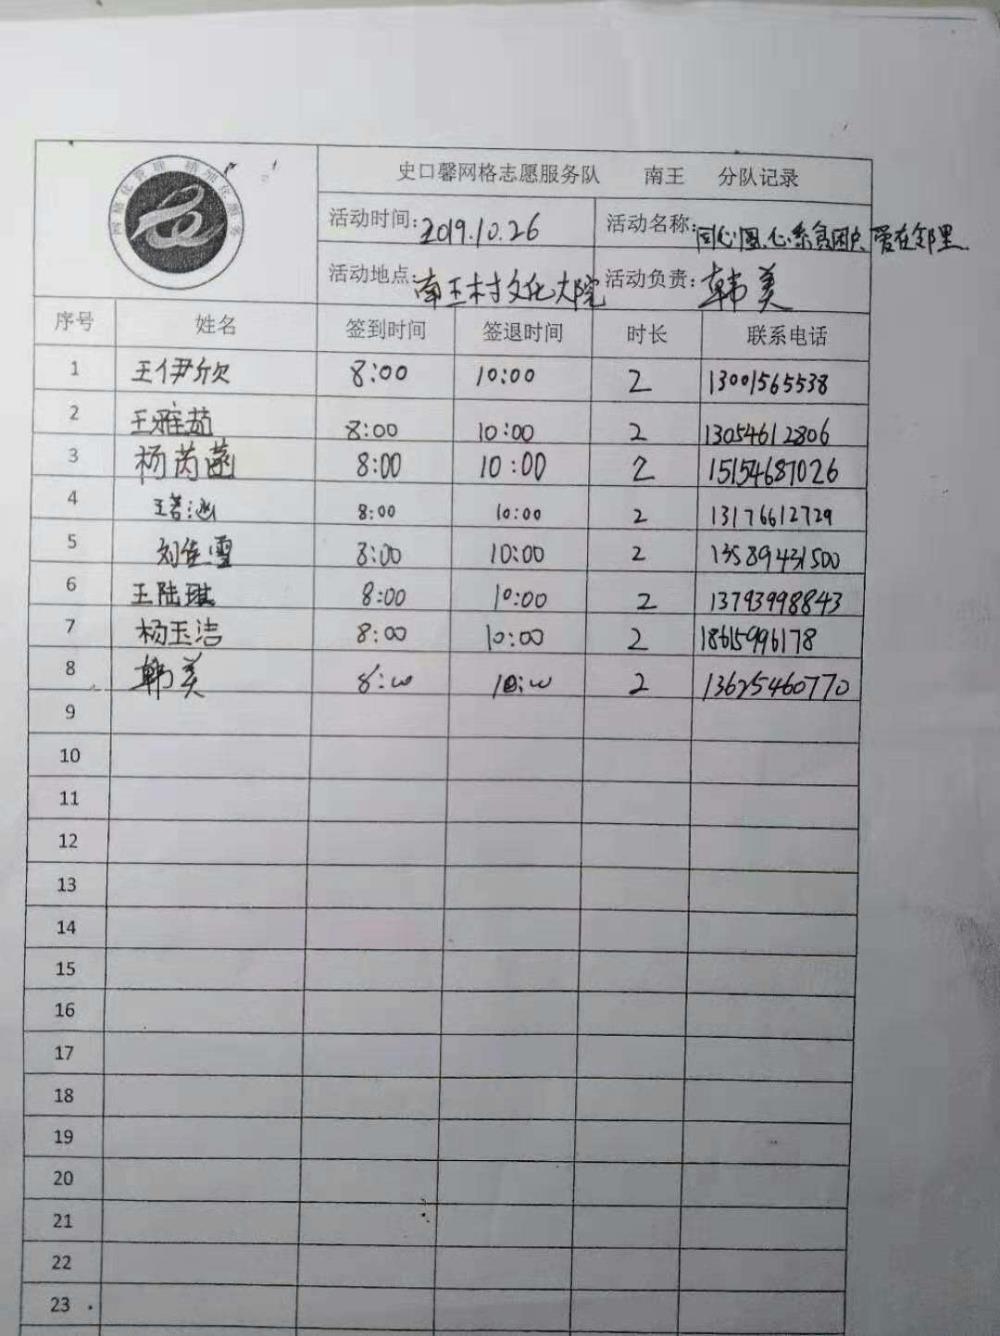 网格化管理 精细化服务
史口馨网格志愿服务队 南王 分队记录
活动时间: 2019.10.26 活动名称: 同心圆、心系贫困户 爱在邻里
活动地点: 南王村文化大院 活动负责: 韩美
序号 姓名 签到时间 签退时间 时长 联系电话
1 王伊欣 8:00 10:00 2 13001565538
2 王雅茹 8:00 10:00 2 13054612806
3 杨芮菡 8:00 10:00 2 15154687026
4 王若涵 8:00 10:00 2 13176612729
5 刘佳雪 8:00 10:00 2 13589431500
6 王陆琪 8:00 10:00 2 13793998843
7 杨玉洁 8:00 10:00 2 18615996178
8 韩美 8:00 10:00 2 13625460770
9
10
11
12
13
14
15
16
17
18
19
20
21
22
23